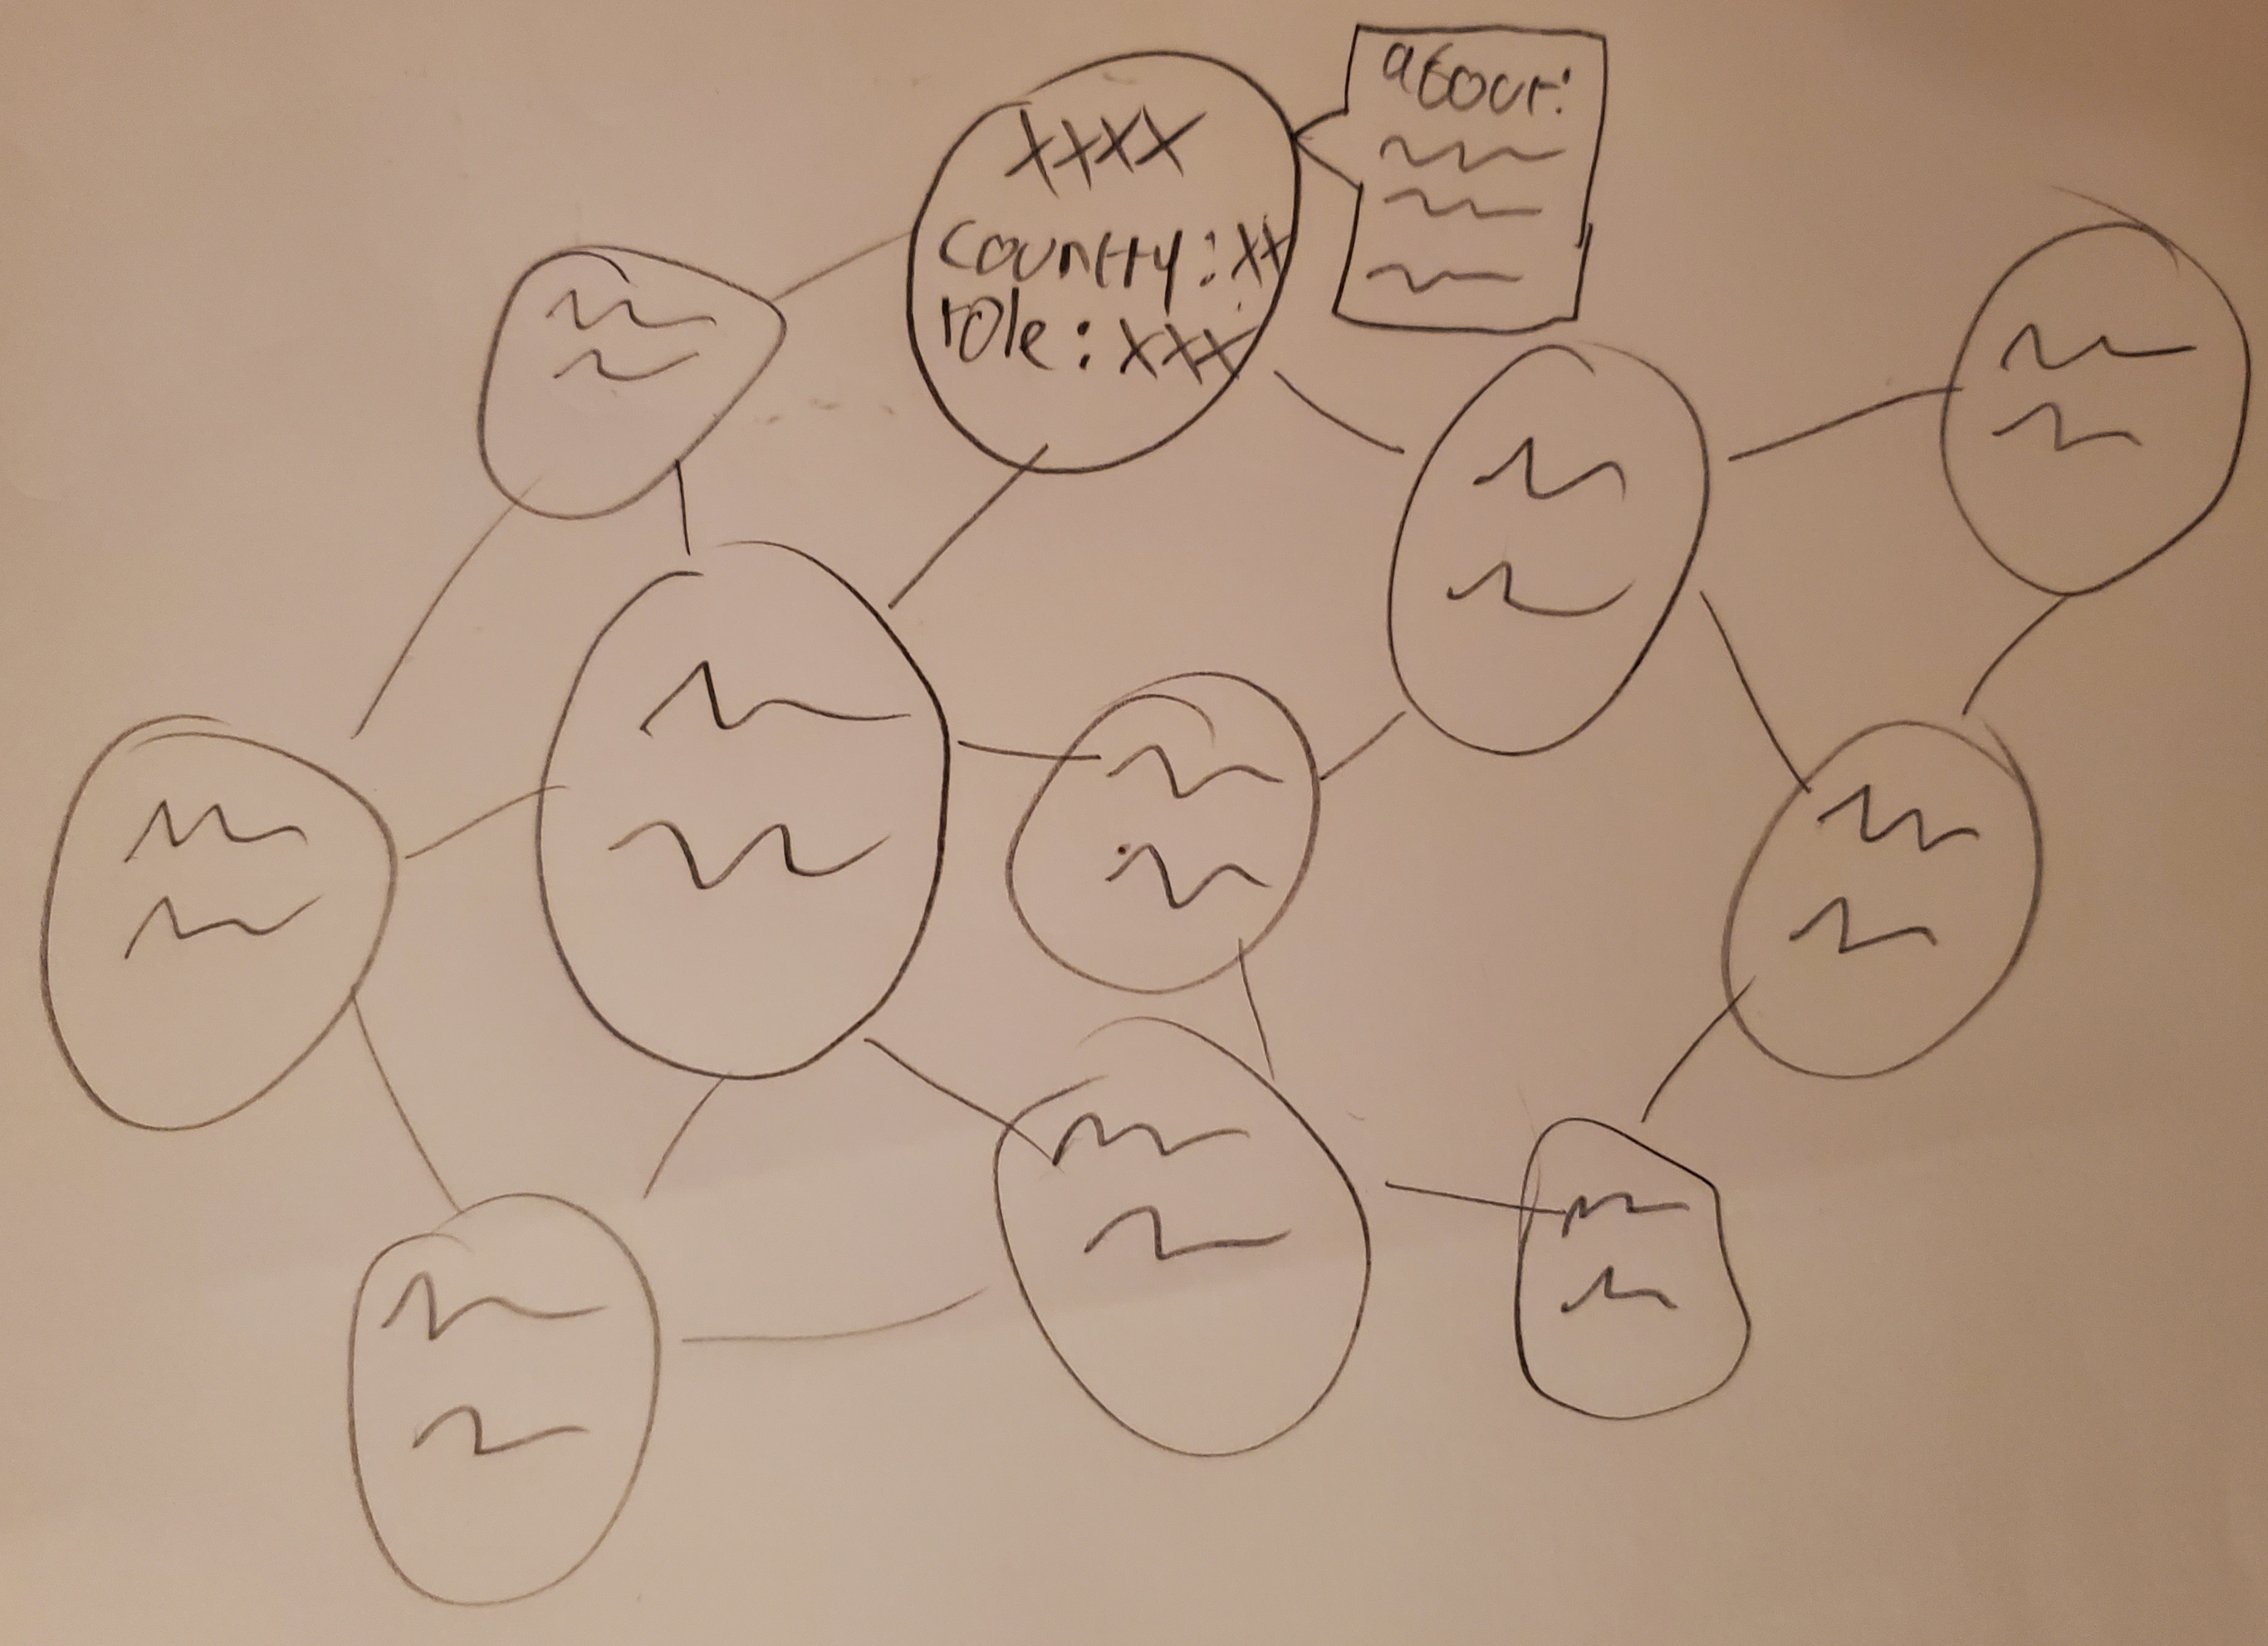 XXXX
country: XX
role: XXX
about: